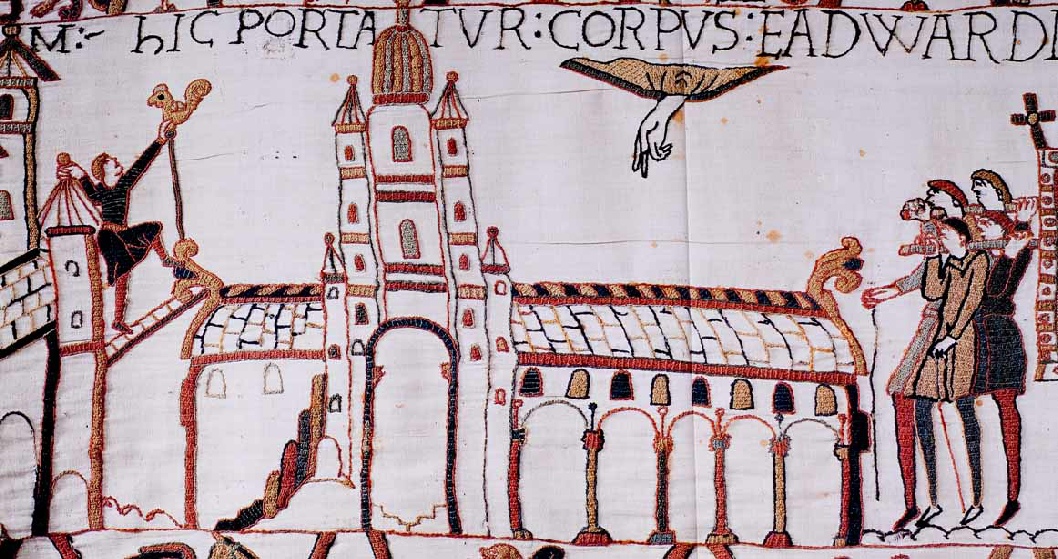 M:- hIC PORTATVR:CORPVS:EADWARDI